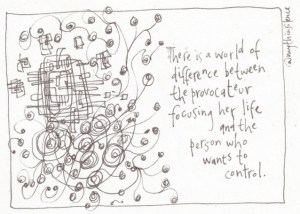 There is a world of
difference between
the provocateur
focusing her life
and the
person who
wants to
control.